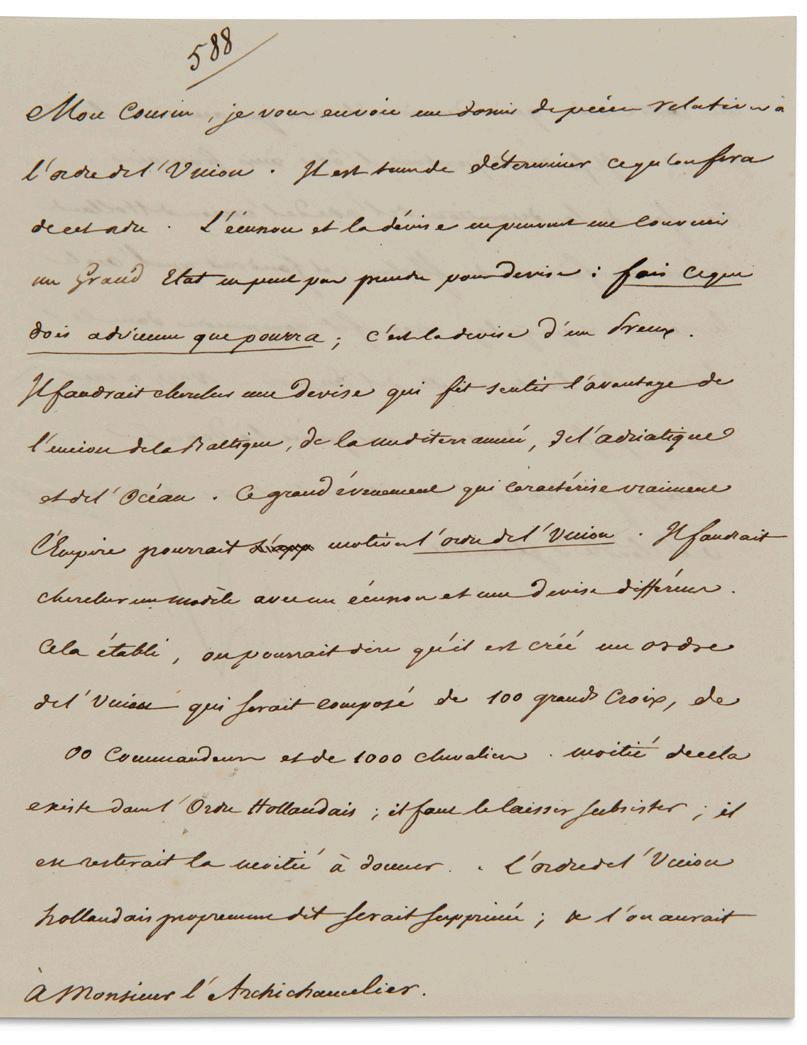 588
Mon Cousin, je vous envoie un dossier de pièces relatives à
l'ordre de l'Union. Il est tems de déterminer ce qu'on fera
de cet ordre. L'écusson et la dévise ne peuvent me convenir
un Grand Etat ne peut pas prendre pour devise : fais ce que
dois advienne que pourra ; c'est la devise d'un Preux.
Il faudrait chercher une devise qui fit sentir l'avantage de
l'union de la Baltique, de la mediterrannée, de l'adriatique
et de l'Océan. Ce grand évenement qui caractérise vraiment
l'Empire pourrait motiver l'ordre de l'Union. Il faudrait
chercher un modèle avec un écusson et une devise différens.
Cela établi, on pourrait dire qu'il est créé un ordre
de l'Union qui serait composé de 100 grands Croix, de
00 Commandeurs et de 1000 chevaliers. moitié de cela
existe dans l'Ordre Hollandais ; il faut le laisser subsister ; il
en resterait la moitié à donner. L'ordre de l'Union
hollandais proprement dit serait supprimé ; & l'on aurait
à Monsieur l'Archichancelier.